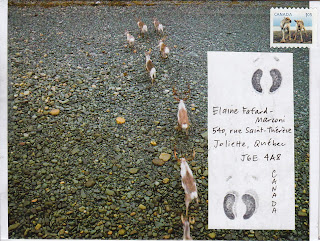 CANADA
Elaine Fatard-
Marzoni
540, rue Saint-Thérèse
Joliette, Québec
J6E 4A8
CANADA